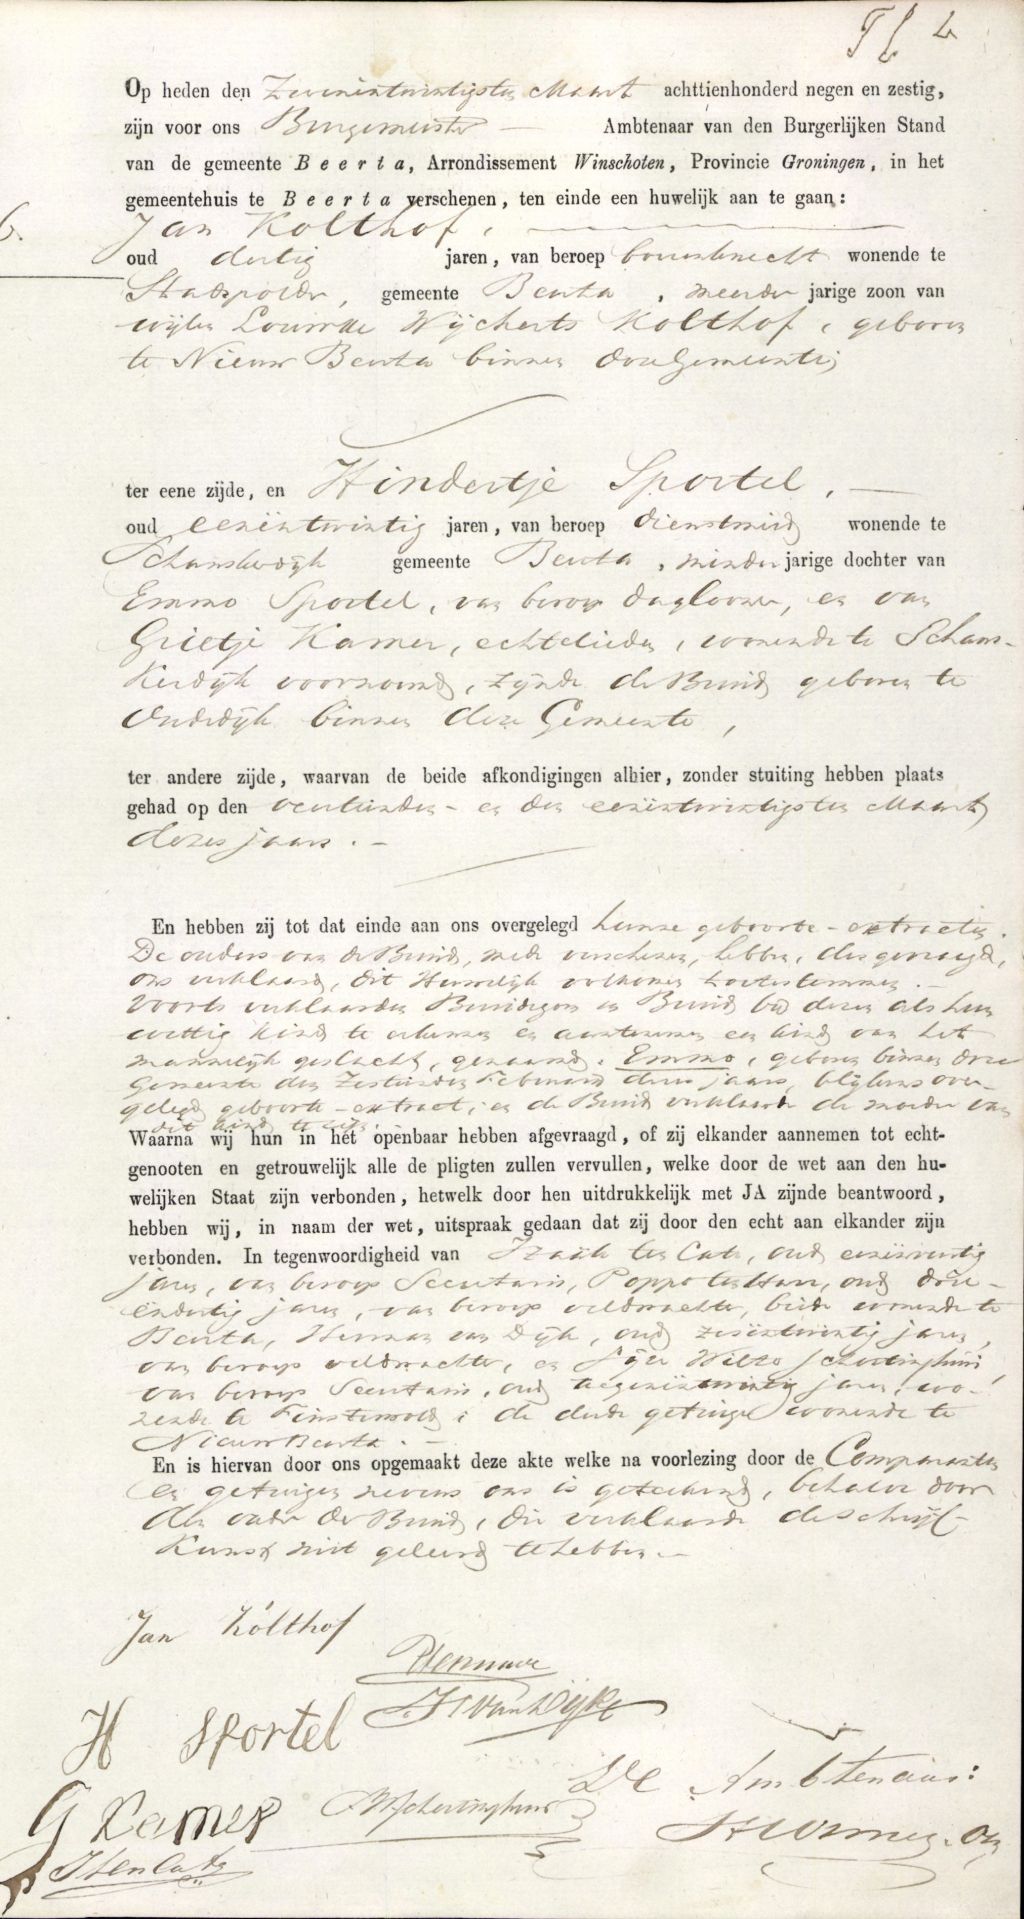 Fl 2
Op heden den Zevenentwintigsten Maart achttienhonderd negen en zestig,
zijn voor ons Burgemeester Ambtenaar van den Burgerlijken Stand
van de gemeente Beerta, Arrondissement Winschoten, Provincie Groningen, in het
gemeentehuis te Beerta verschenen, ten einde een huwelijk aan te gaan:
6.
Jan Kolthof,
oud dertig jaren, van beroep boerenknecht wonende te
Stadspolder, gemeente Beerta, meerder jarige zoon van
wijlen Lourde Wijcherts Kolthof, geboren
te Nieuw Beerta binnen deze Gemeente;
ter eene zijde, en Hindertje Sportel,
oud eenëntwintig jaren, van beroep dienstmeid wonende te
Schanskerdijk gemeente Beerta, minder jarige dochter van
Emmo Sportel, van beroep daglooner, en van
Grietje Kamer, echtelieden, wonende te Schans-
kerdijk voornoemd, zijnde de Bruid geboren te
Oudedijk binnen deze Gemeente,
ter andere zijde, waarvan de beide afkondigingen alhier, zonder stuiting hebben plaats
gehad op den veertienden - en den eenëntwintigsten Maart
dezes jaars. -
En hebben zij tot dat einde aan ons overgelegd hunne geboorte-extracten.
De ouders van de Bruid, mede verschenen, hebben, des gevraagd,
ons verklaard, dit Huwelijk volkomen toetestemmen. -
Voorts verklaarden Bruidegom en Bruid bij dezen als hun
wettig kind te erkennen en aantenemen een kind van het
mannelijk geslacht, genaamd: Emmo, geboren binnen deze
Gemeente den Zestienden Februarij dezes jaars, blijkens over-
gelegd geboorte-extract; en de Bruid verklaarde de moeder van
dit kind te zijn.
Waarna wij hun in het openbaar hebben afgevraagd, of zij elkander aannemen tot echt-
genooten en getrouwelijk alle de pligten zullen vervullen, welke door de wet aan den hu-
welijken Staat zijn verbonden, hetwelk door hen uitdrukkelijk met JA zijnde beantwoord,
hebben wij, in naam der wet, uitspraak gedaan dat zij door den echt aan elkander zijn
verbonden. In tegenwoordigheid van Izaäk ten Cate, oud
jaren, van beroep Secretaris, Poppo oud drie-
ëndertig jaren, van beroep veldwachter, beide wonende te
Beerta, Herman van Dijk, oud zesëntwintig jaren,
van beroep veldwachter, en Wilto Schortinghuis
van beroep Secretaris, oud negenëntwintig jaren, wo-
nende te Finsterwold; de derde getuige wonende te
Nieuw Beerta. -
En is hiervan door ons opgemaakt deze akte welke na voorlezing door de Comparanten
en getuigen nevens ons is geteekend, behalve door
den vader der Bruid, die verklaarde de schrijf-
kunst niet geleerd te hebben. -
Jan Kolthof
H van Dijk
H Sportel
De Ambtenaar:
G Kamer Schortinghuis
I ten Cate